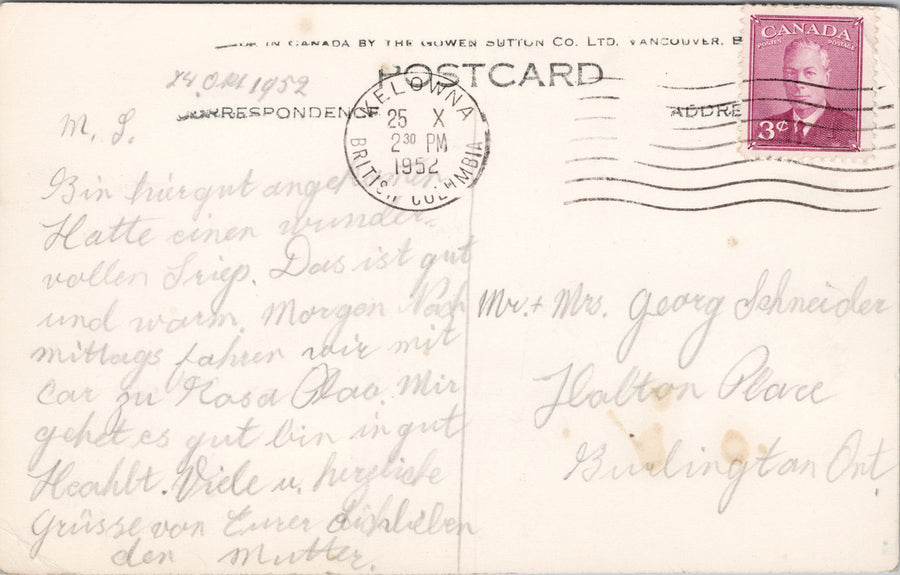 IN CANADA BY THE GOWEN SUTTON CO. LTD. VANCOUVER, B
POSTCARD
CORRESPONDENCE
ADDRE
CANADA
POSTES POSTAGE
3¢
KELOWNA
25 X
2 30 PM
1952
BRITISH COLUMBIA
24 Okt 1952
M. L.
Bin hiergut angekommen
Hatte einen wunder
vollen Triep. Das ist gut
und warm. Morgen Nach
mittags fahren wir mit
Car zu Rosa Mir
gehet es gut bin in gut
Heahlt. Viele u. herzliche
Grüsse von Eurer Euchlieben
den Mutter.
Mr. + Mrs. Georg Schneider
Halton Place
Burlingtan Ont